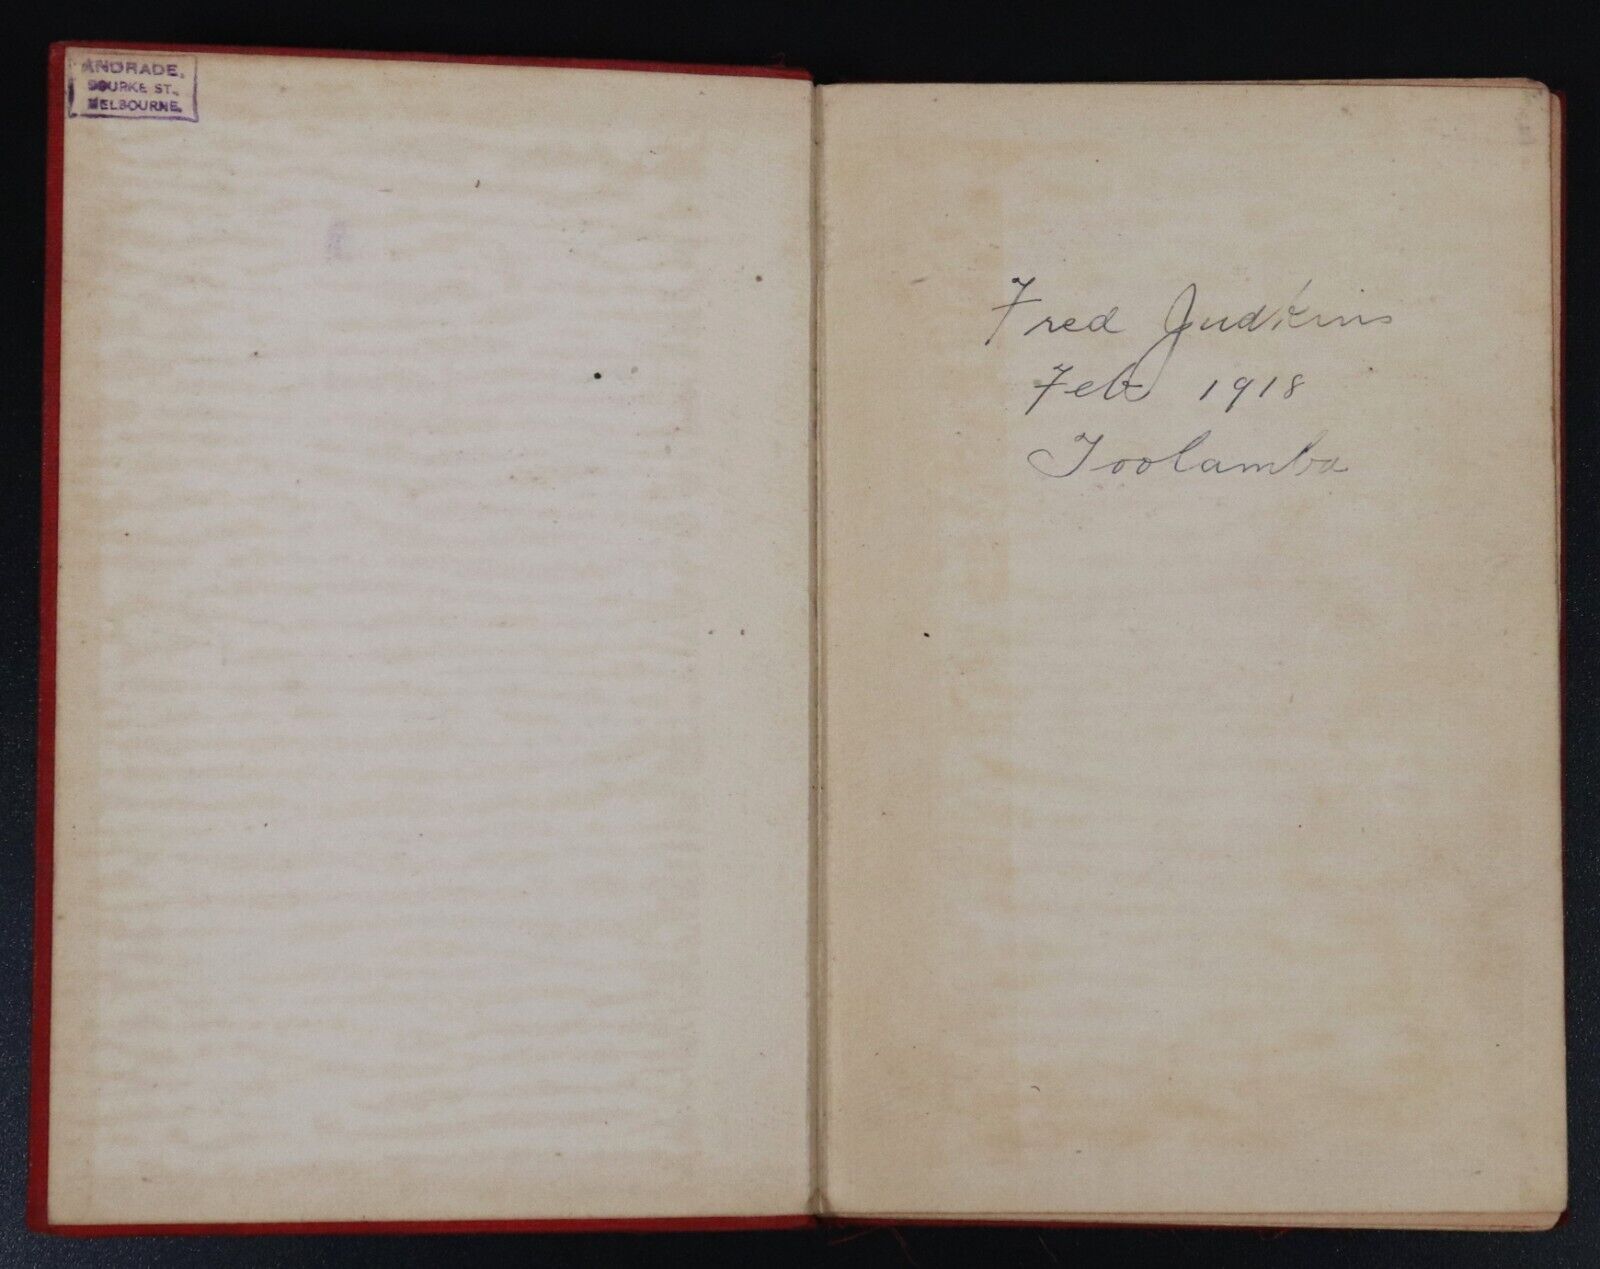 ANDRADE,
BOURKE ST.,
MELBOURNE.
Fred Judkins
Feb 1918
Toolamba